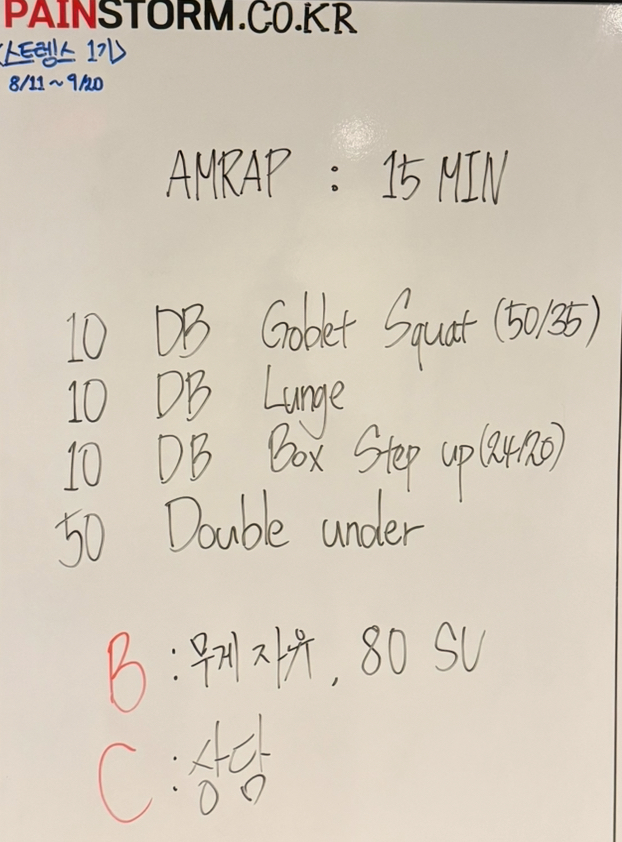 PAINSTORM.CO.KR
<스트렝스 1기>
8/11~9/20
AMRAP : 15 MIN
10 DB Goblet Squat (50/35)
10 DB Lunge
10 DB Box Step up (24/20)
50 Double under
B : 무게 자유, 80 SU
C : 상담